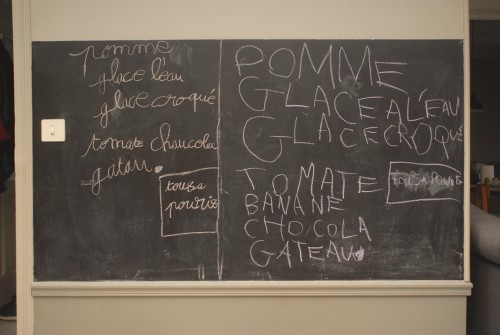 pomme
glace l'eau
glace croqué
tomate chaucola
gatau.
tous a
pouries
POMME
GLACE A L'ÉAU
GLACE CROQUÉ
TOMATE
BANANE
CHOCOLA
GATEAU
TOUS A